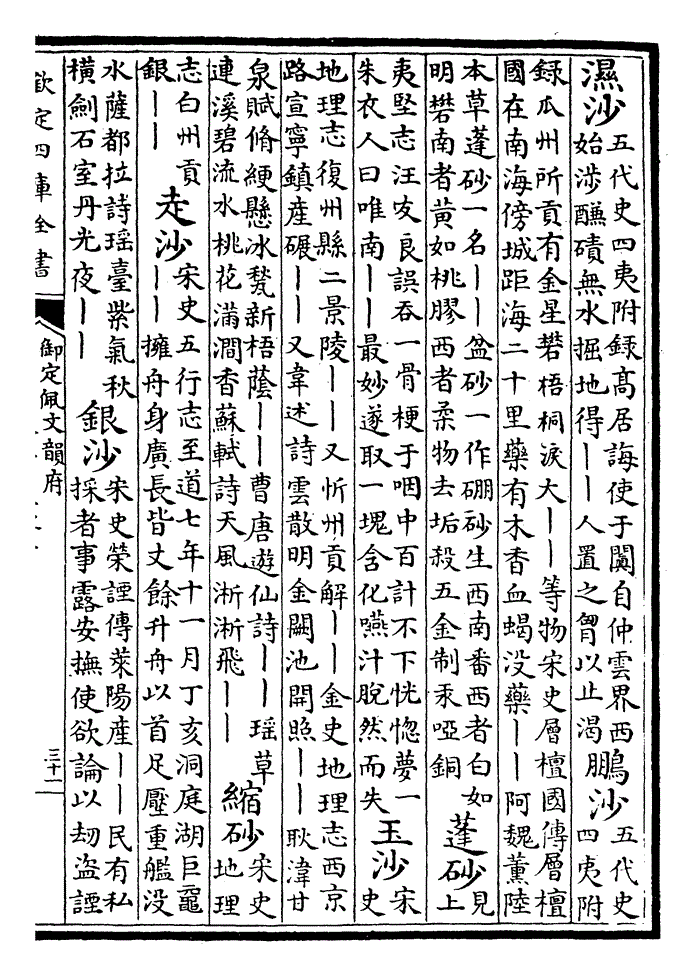 濕沙
五代史四夷附録髙居誨使于闐自仲雲界西
始涉醶磧無水掘地得——人置之胷以止渴
鵬沙
五代史
四夷附
録瓜州所貢有金星礬梧桐淚大——等物宋史層檀國傳層檀
國在南海傍城距海二十里藥有木香血蝎没藥——阿魏薰陸
本草蓬砂一名——盆砂一作硼砂生西南番西者白如
明礬南者黄如桃膠西者柔物去垢殺五金制汞啞銅
蓬砂
見
上
夷堅志汪友良誤吞一骨梗于咽中百計不下恍惚夢一
朱衣人曰唯南——最妙遂取一塊含化嚥汁脫然而失
玉沙
宋
史
地理志復州縣二景陵——又忻州貢解——金史地理志西京
路宣寧鎮産碾——又韋述詩雲散明金闕池開照——耿湋甘
泉賦脩綆懸冰甃新梧蔭——曹唐遊仙詩——瑶草
連溪碧流水桃花滿澗香蘇軾詩天風淅淅飛——
縮砂
宋史
地理
志白州貢
銀——
走沙
宋史五行志至道七年十一月丁亥洞庭湖巨黿
——擁舟身廣長皆丈餘升舟以首足壓重艦没
水薩都拉詩瑶臺紫氣秋
横劍石室丹光夜——
銀沙
宋史榮諲傳萊陽産——民有私
採者事露安撫使欲論以刼盗諲
欽定四庫全書
御定佩文韻府
三十一